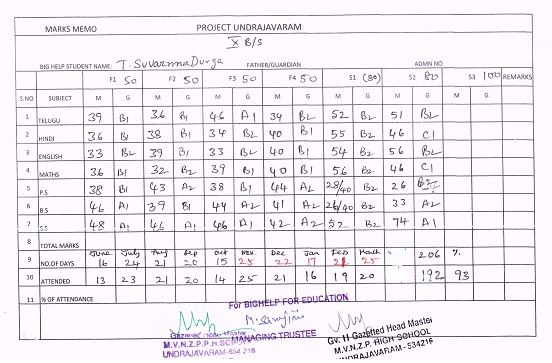 MARKS MEMO PROJECT UNDRAJAVARAM
X B/S
BIG HELP STUDENT NAME: T. Suvarnna Durga FATHER/GUARDIAN ADMN NO
F1 50 F2 50 F3 50 F4 50 S1 (80) S2 80 S3 100 REMARKS
S.NO SUBJECT M G M G M G M G M G M G M G
1 TELUGU 39 B1 36 B1 46 A1 34 B2 52 B2 51 B2
2 HINDI 36 B1 38 B1 34 B2 40 B1 55 B2 46 C1
3 ENGLISH 33 B2 39 B1 33 B2 40 B1 54 B2 56 B2
4 MATHS 36 B1 32 B2 39 B1 40 B1 56 B2 46 C1
5 P.S 38 B1 43 A2 38 B1 44 A2 28/40 B2 26
6 B.S 46 A1 39 B1 44 A2 41 A2 26/40 B2 33 A2
7 S.S 48 A1 46 A1 46 A1 42 A2 52 B2 74 A1
8 TOTAL MARKS
June July Aug Sep Oct Nov Dec Jan Feb March
9 NO.OF DAYS 16 24 21 20 15 25 22 17 21 25 206 %
10 ATTENDED 13 23 21 20 14 25 21 16 19 20 192 93
11 % OF ATTENDANCE
For BIGHELP FOR EDUCATION
MANAGING TRUSTEE
Gv. II Gazetted Head Master
M.V.N.Z.P.P.H.SCHOOL M.V.N.Z.P. HIGH SCHOOL
UNDRAJAVARAM-534 216 UNDRAJAVARAM - 534216